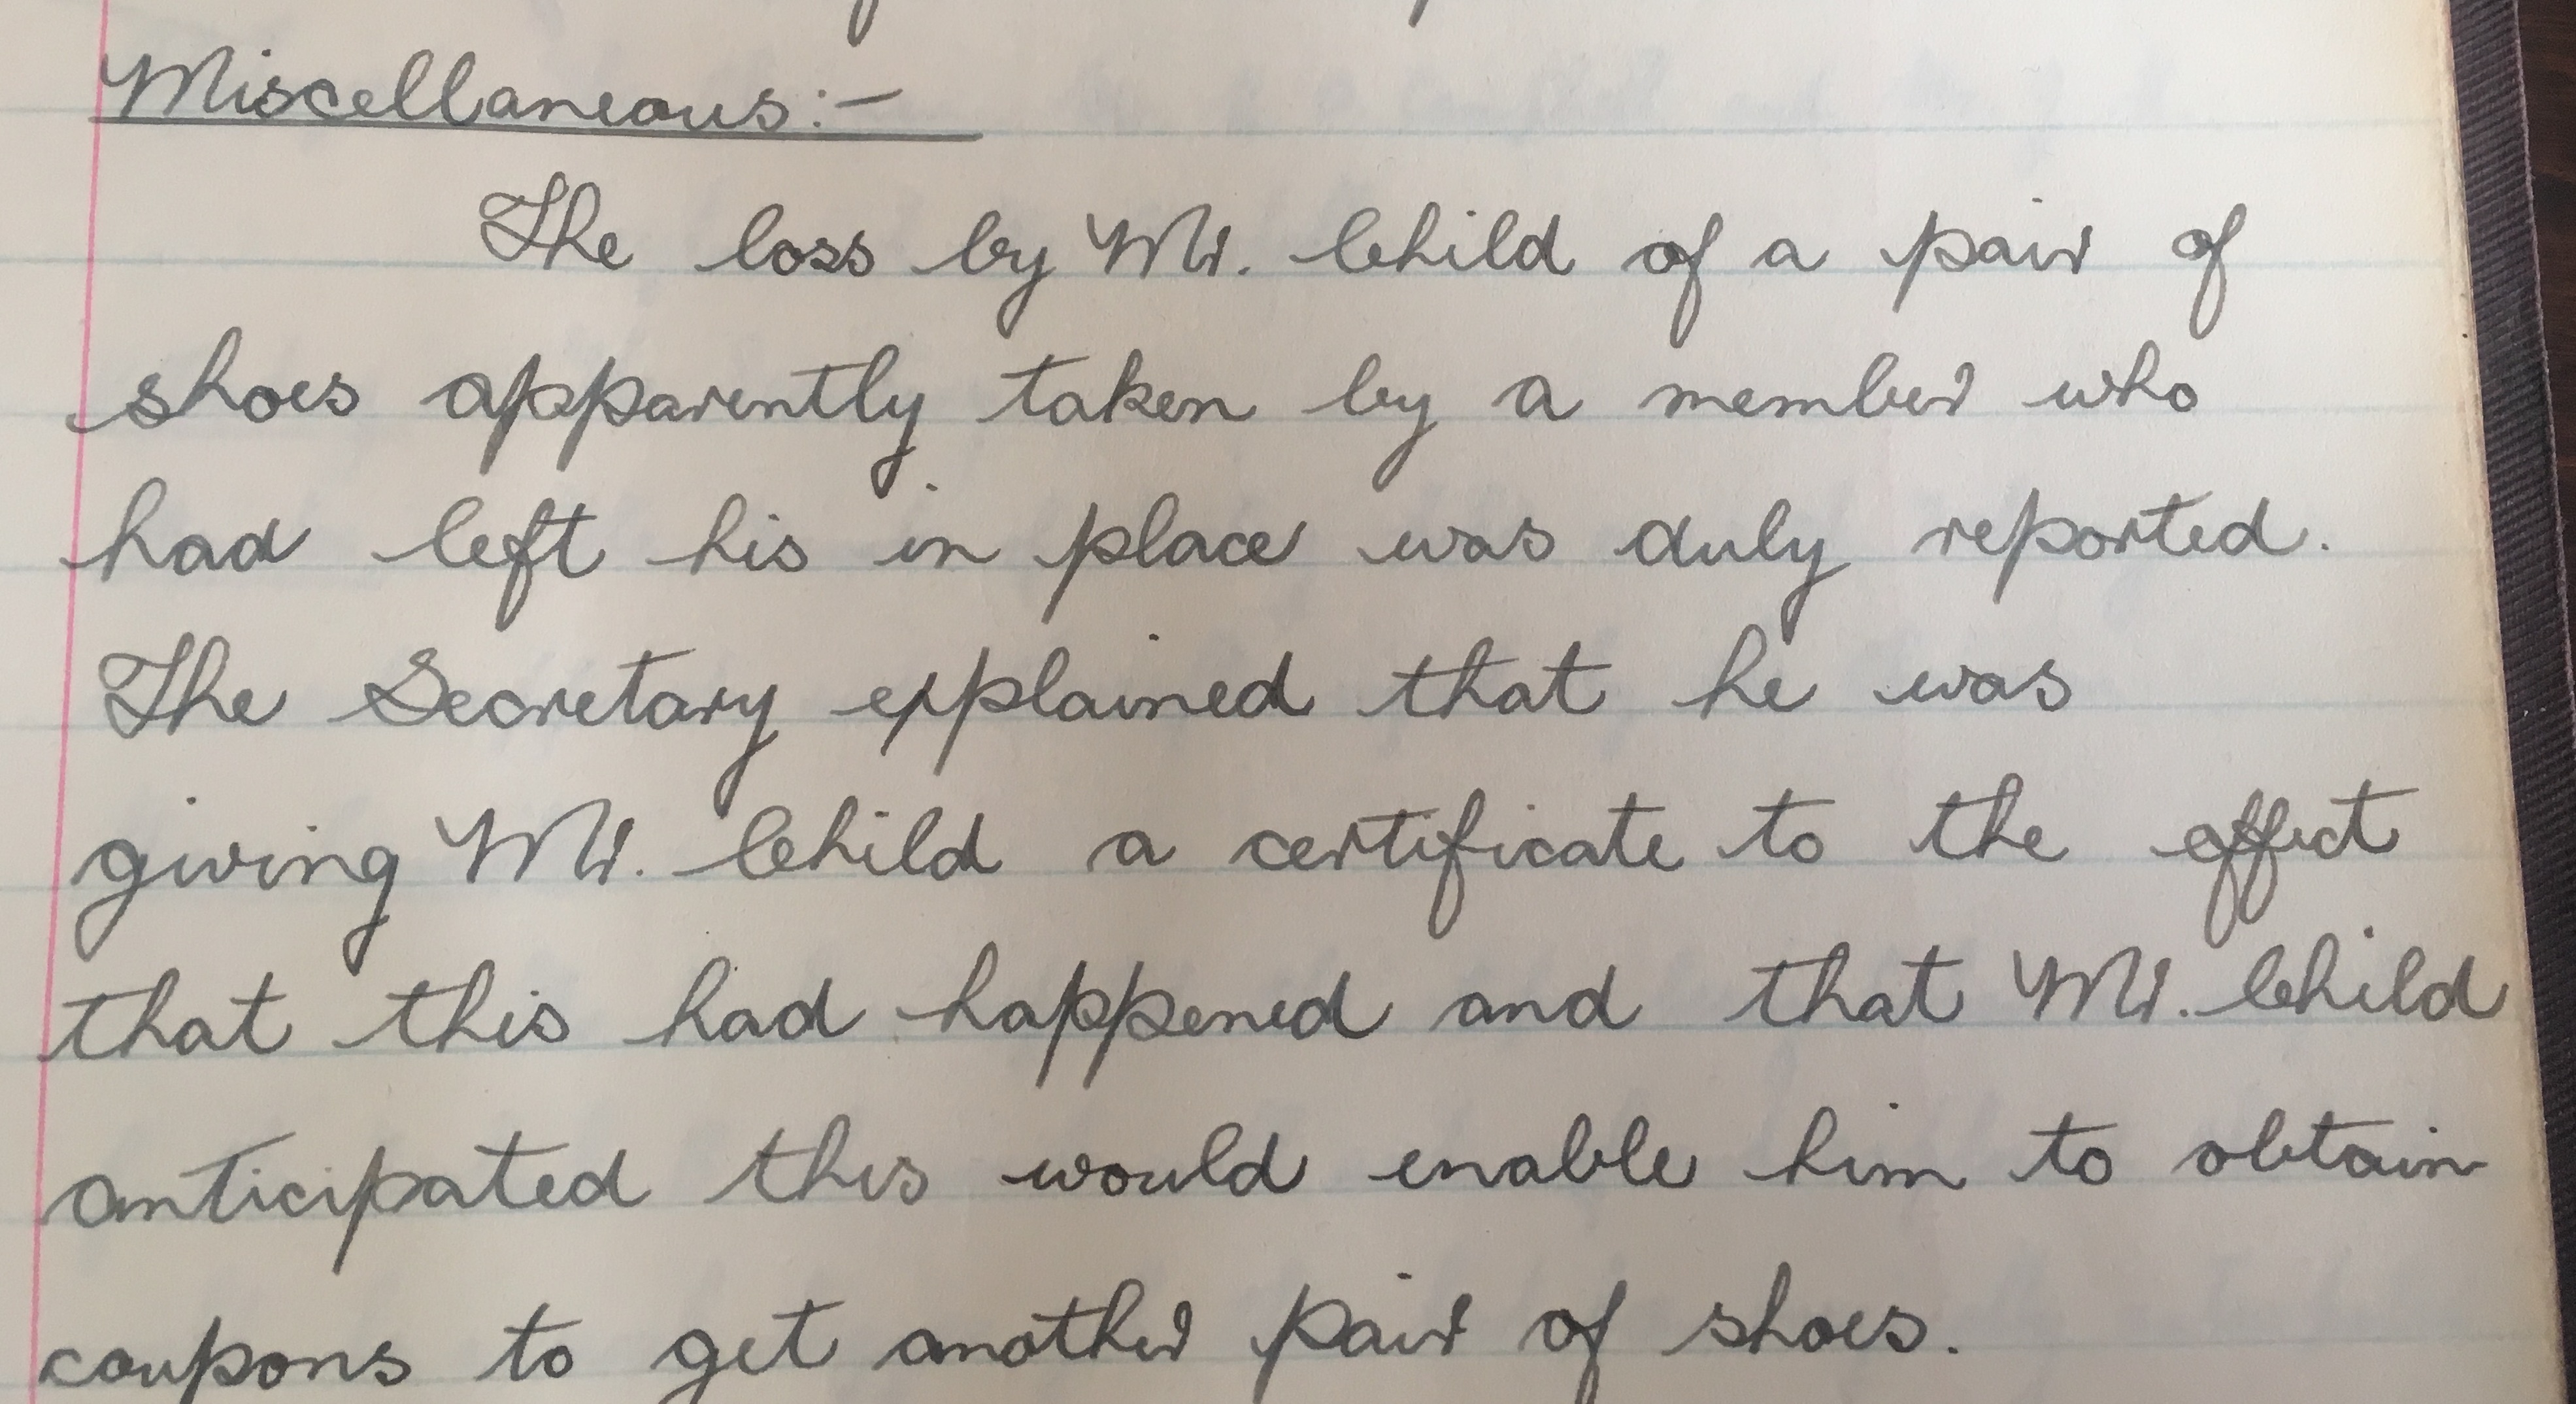 Miscellaneous:-
The loss by Mr. Child of a pair of
shoes apparently taken by a member who
had left his in place was duly reported.
The Secretary explained that he was
giving Mr. Child a certificate to the effect
that this had happened and that Mr. Child
anticipated this would enable him to obtain
coupons to get another pair of shoes.